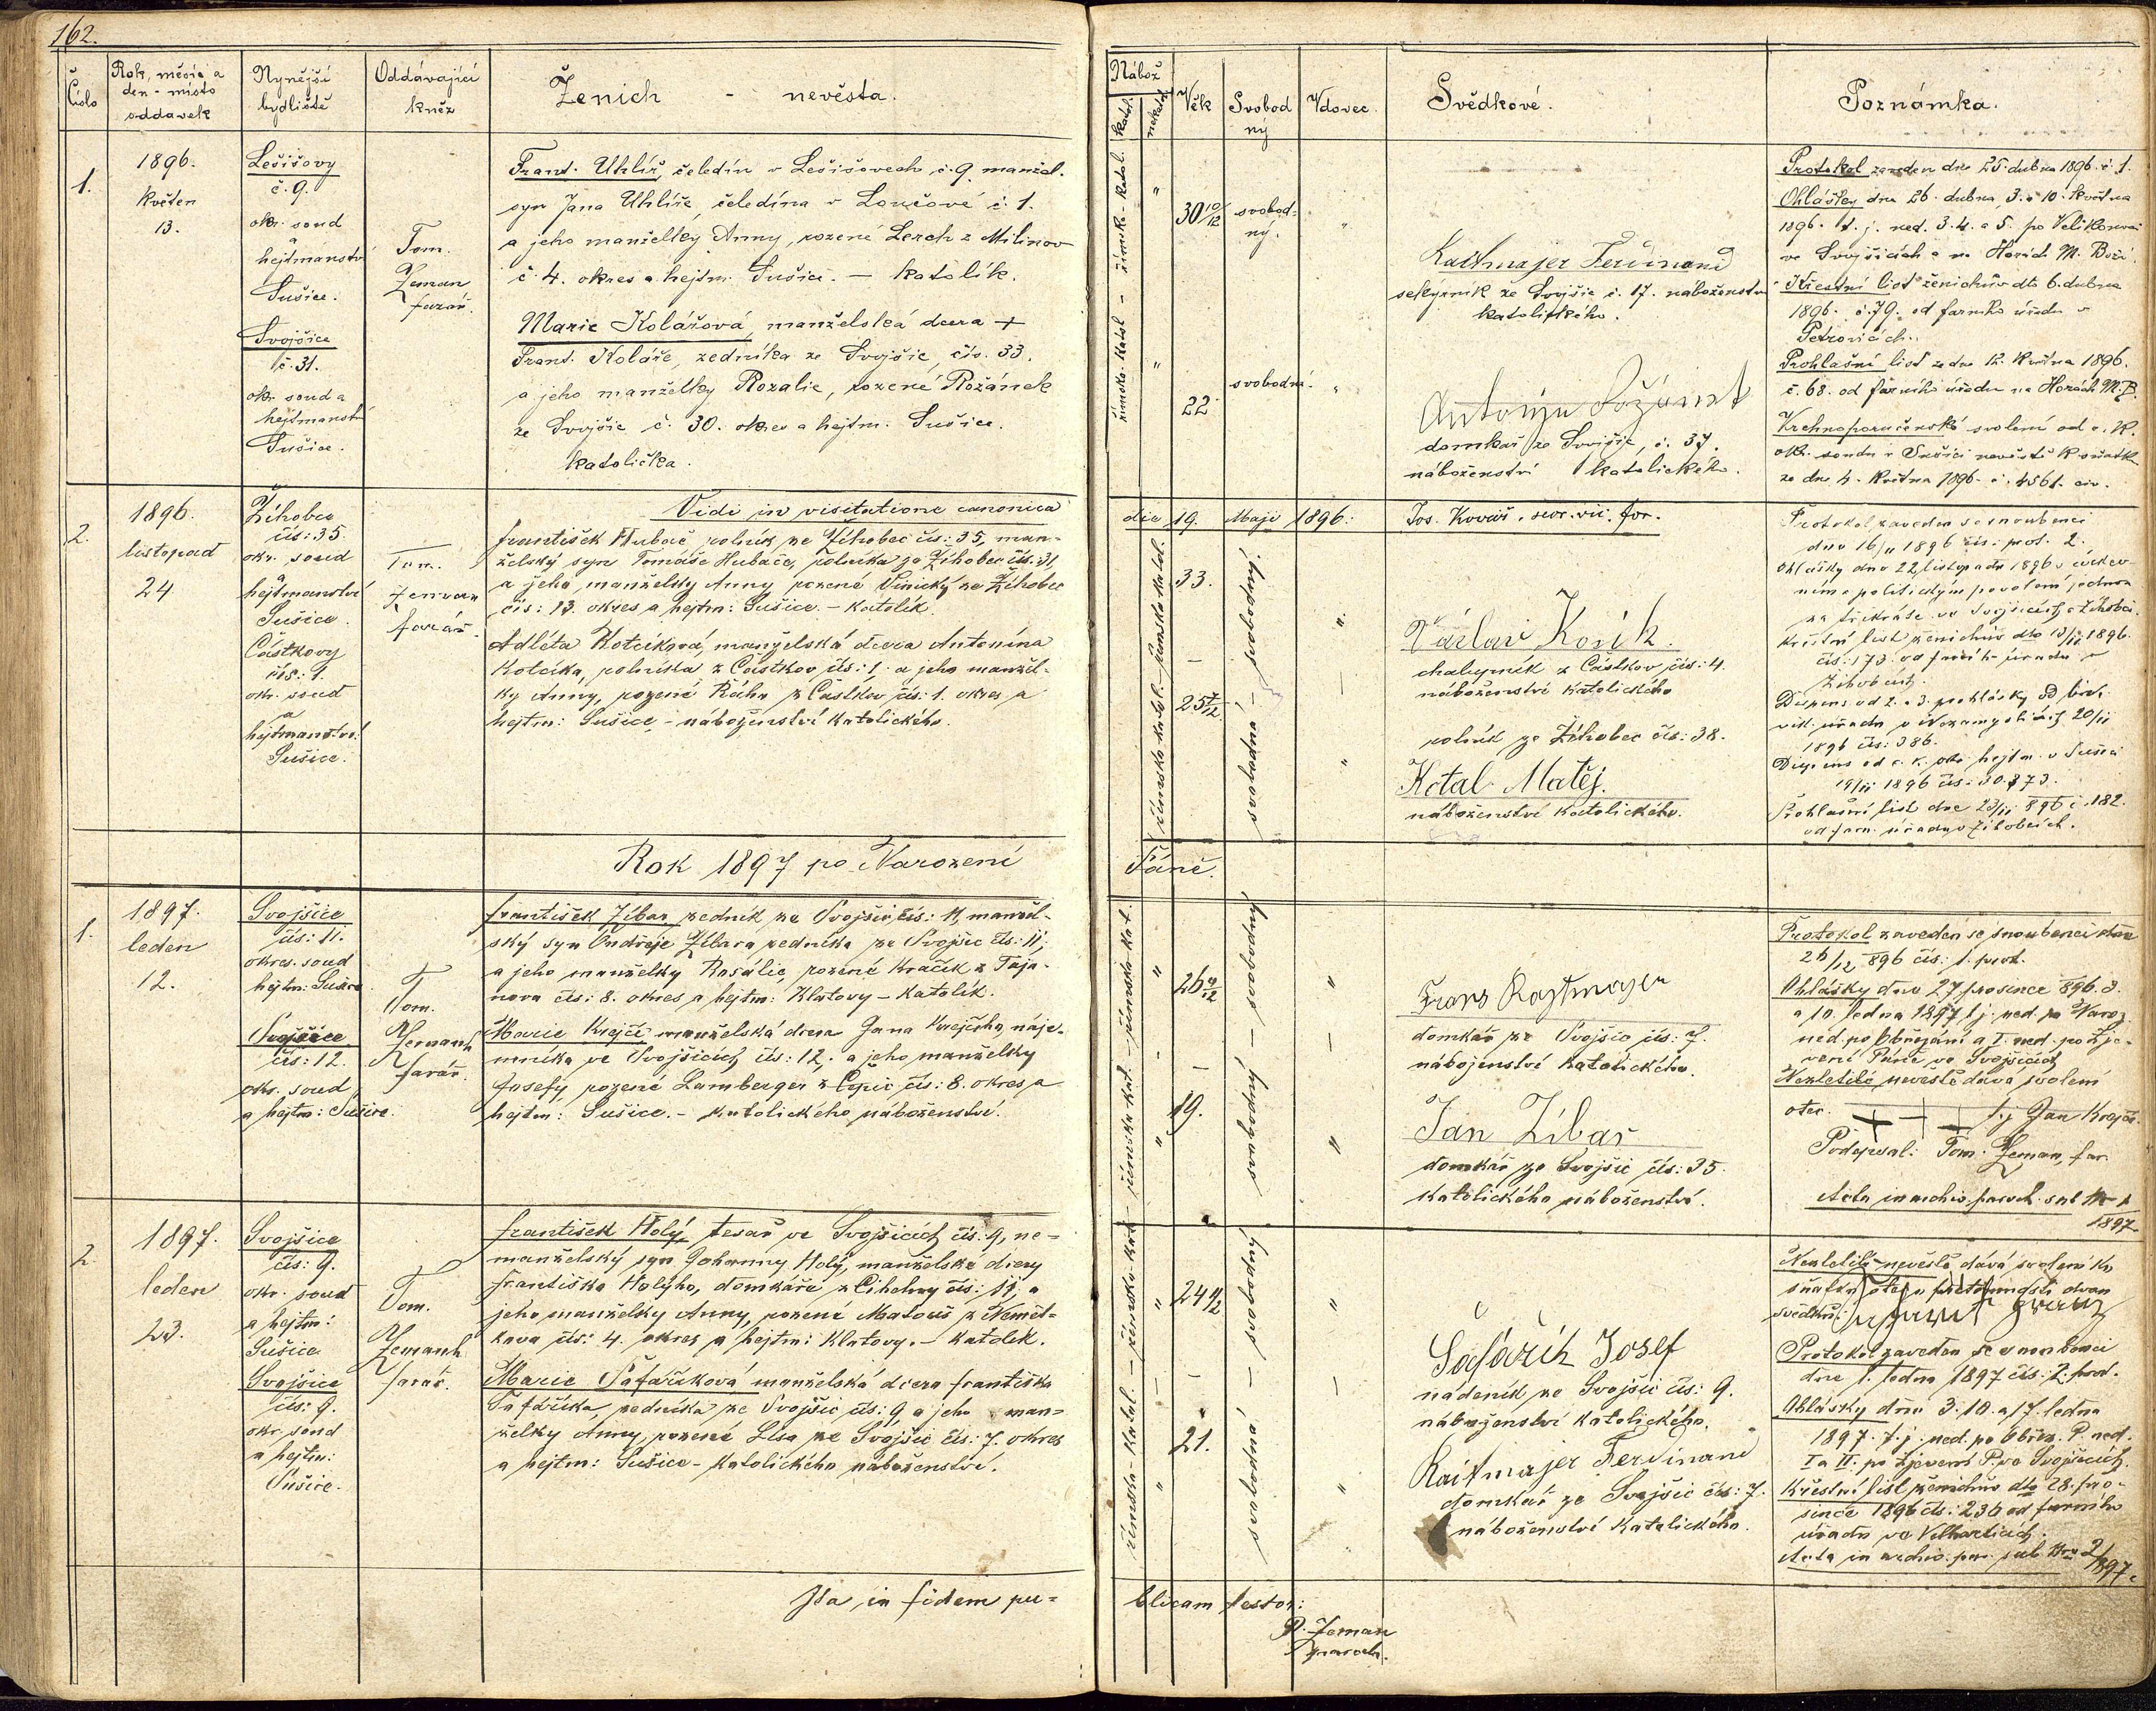 162.
Číslo
Rok, měsíc a
den - místo
oddavek
Nynější
bydliště
Oddávající
kněz
Ženich - nevěsta.
1.
1896.
Květen
13.
Lešišovy
č. 9.
okr. soud
a
hejtmanství
Sušice.
Svojšice
č. 31.
okr. soud a
hejtmanství
Sušice.
Tom.
Zeman
farář.
Frant. Uhlíř, čeledín v Lešišovech č. 9. manžel.
syn Jana Uhlíře, čeledína v Loučové č. 1.
a jeho manželky Anny, rozené Lerch z Milinov
č. 4. okres a hejtm. Sušice. — katolík.
Marie Kolářová, manželská dcera +
Frant. Koláře, zedníka ze Svojšic, čís. 33.
a jeho manželky Rozalie, rozené Rožánek
ze Svojšic č. 30. okres a hejtm. Sušice.
katolička.
Vidi in visitatione canonica
2.
1896.
listopad
24
Žíhobec
čís: 35.
okr. soud
a
hejtmanství
Sušice.
Částkovy
čís: 1.
okr. soud
a
hejtmanství
Sušice.
Tom.
Zeman
farář.
František Hubač rolník ze Žíhobec čís: 35, man-
želský syn Tomáše Hubače, rolníka ze Žíhobec čís: 31,
a jeho manželky Anny rozené Vinický ze Žíhobec
čís: 13. okres a hejtm: Sušice. - katolík.
Adléta Kotcíková, manželská dcera Antonína
Kotcíka, rolníka z Částkov čís: 1, a jeho manžel-
ky Anny, rozené Rácha z Částkov čís: 1. okres a
hejtm: Sušice - náboženství katolického.
Rok 1897 po Narození
1.
1897.
leden
12.
Svojšice
čís: 11.
okres. soud
hejtm: Sušice
Svojšice
čís: 12.
okr. soud
a hejtm: Sušice.
Tom.
Zemanh
farář.
František Žíbar zedník ze Svojšic, čís: 11, manžel-
ský syn Ondřeje Žíbara zedníka ze Svojšic čís: 11,
a jeho manželky Rosálie, rozené Kračík z Taja-
nova čís: 8. okres a hejtm: Klatovy - katolík.
Marie Krejčí manželská dcera Jana Krejčího, náje-
mníka ve Svojšicích čís: 12. a jeho manželky
Josefy, rozené Lamberger z Čepic, čís: 8. okres a
hejtm: Sušice. - katolického náboženství.
2.
1897.
leden
23.
Svojšice
čís: 9.
okr. soud
a hejtm:
Sušice
Svojšice
čís: 9.
okr. soud
a hejtm:
Sušice.
Tom.
Zemanh
farář.
František Holý, tesař ve Svojšicích čís: 9, ne-
manželský syn Johanny Holý, manželské dcery
Františka Holýho, domkáře z Cihelny čís: 11, a
jeho manželky Anny, rozené Matouš z Němčí-
kova čís: 4. okres a hejtm: Klatovy. - katolík.
Marie Šafaříková manželská dcera Františka
Šafaříka, zedníka ze Svojšic čís: 9, a jeho man-
želky Anny, rozené Lisa ze Svojšic čís: 7. okres
a hejtm: Sušice - katolického náboženství.
Ita, in fidem pu-
Nábož
katol.
nekatol.
Věk
Svobod
ný
Vdovec.
Svědkové.
Poznámka.
římsko-katol - římsk-katol.
30 10/12
svobod-
ný.
22
svobodná.
Kaitmajer Ferdinand
sekyrník ze Svojšic č. 17. náboženství
katolického.
domkář ze Svojšic, č. 37.
náboženství katolického.
Protokol zaveden dne 25. dubna 1896. č. 1.
Ohlášky dne 26. dubna, 3. a 10. května
1896. t. j. ned. 3. 4. a 5. po Velikonoci
ve Svojšicích a na Horách M. Boží.
Křestní list ženichův dto 6. dubna
1896. č. 79. od farního úřadu v
Petrovicích.
Prohlašní list ze dne 12. května 1896.
č. 68. od farního úřadu na Horách M. B.
Vrchnoporučenské svolení od c. k.
okr. soudu v Sušici nevěstě k sňatku
ze dne 4. května 1896. č. 4561. civ.
die 19. Maji 1896: Jos. Kovář, secr. vic. for.
římsko katol. - římsko katol.
33.
25
svobodný - svobodná
Václav Kosík
chalupník z Částkov čís: 4.
náboženství katolického
rolník ze Žíhobec čís: 38.
Kotal Matěj.
náboženství katolického.
Protokol zaveden se snoubenci
dne 16/11 1896 čís: prot. 2.
Ohlášky dne 22 listopadu 1896 s církev-
ním a politickým povolením jednou
za třikráte ve Svojšicích a Žíhobci.
Křestní list ženichův dto 1896.
čís: 173. od farního úřadu v
Žíhobcích.
Dispens od 2. a 3. prohlášky od bisk.
vik. úřadu v Nezamyslicích 20/11
1896 čís: 386.
Dispens od c. k. okr. hejtm. v Sušici
19/11 1896 čís: 30.873.
Prohlašní list dne 23/11 896 č. 182.
od farn. úřadu v Žíhobcích.
Páně.
římsko kat. - římsko kat.
26
19.
svobodný - svobodná
Franz Kaytmayer
domkář ze Svojšic čís: 7.
náboženství katolického.
Jan Žíbar
domkář ze Svojšic čís: 35.
katolického náboženství.
Protokol zaveden se snoubenci dne
26/12 896 čís: 1. prot.
Ohlášky dne 27 prosince 896. 3.
a 10. ledna 1897, t. j. ned. po Naroz.
ned. po Obřezání a I. ned. po Zje-
vení Páně ve Svojšicích
Nezletilé nevěstě dává svolení
otec. + + + t. j. Jan Krejčí.
Podepsal: Tom. Zeman, far.
Acta in archiv. paroch. sub Nro 1
1897
římsko-katol. - římsko-kat.
24
21.
svobodný - svobodná
Šafařík Josef
nádeník ze Svojšic čís: 9.
náboženství katolického.
Kaitmajer Ferdinand
domkář ze Svojšic čís: 7.
náboženství katolického.
Nezletilé nevěstě dává svolení ku
sňatku otec v přítomnosti dvou
svědků:
Protokol zaveden se snoubenci
dne 1. ledna 1897 čís: 2. prot.
Ohlášky dne 3. 10. a 17. ledna
1897. t. j. ned. po Obřez. P. ned.
I a II. po Zjevení P. ve Svojšicích.
Křestní list ženichův dto 28. pro-
since 1896 čís: 236 od farního
úřadu ve Velharticích.
Acta in archiv. par. sub Nro 2/1897.
blicam testor:
P. Zeman
paroch.